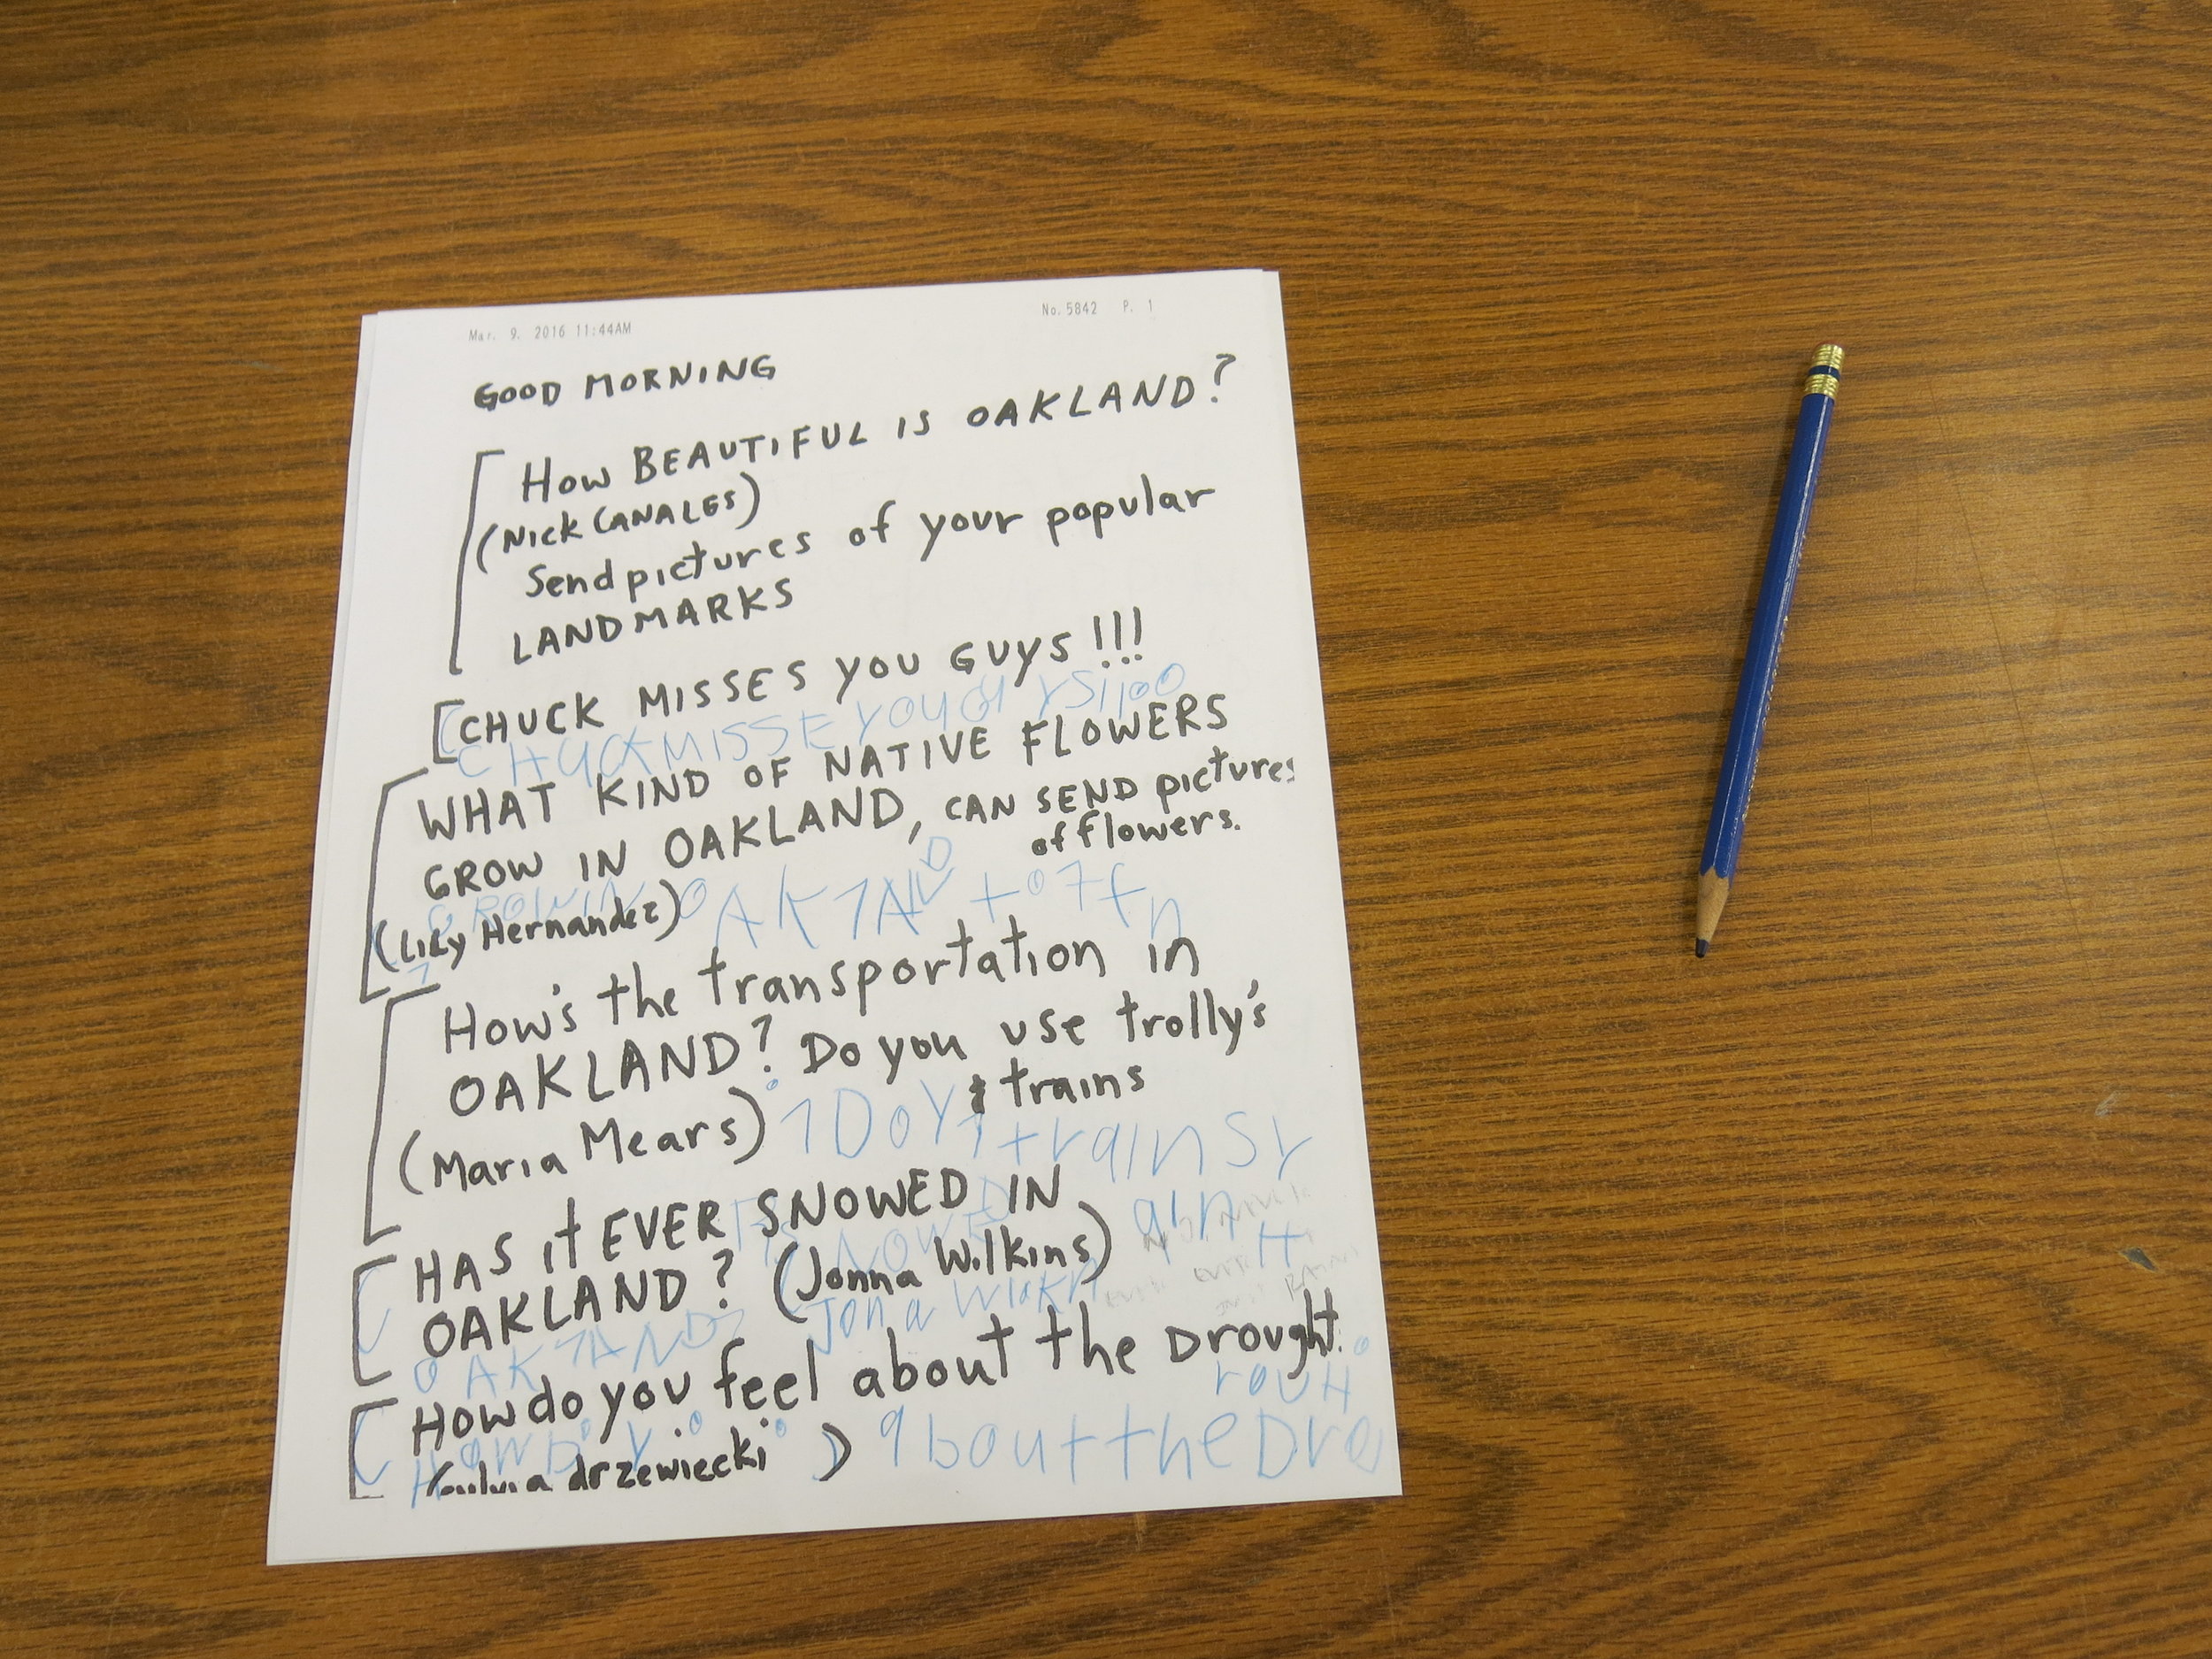 Mar. 9. 2016 11:44AM No. 5842 P. 1
GOOD MORNING
HOW BEAUTIFUL IS OAKLAND?
(NICK CANALES)
Send pictures of your popular
LANDMARKS
CHUCK MISSES YOU GUYS!!!
CHUCKMISSE YOUG YS
WHAT KIND OF NATIVE FLOWERS
GROW IN OAKLAND, CAN SEND pictures
of flowers.
GROWIN OAK7AND
(LiLy Hernandez)
How's the transportation in
OAKLAND? Do you use trolly's
& trains
(Maria Mears) 1DoY1trainsr
HAS it EVER SNOWED IN ain
OAKLAND? (Jonna Wilkins) H
OAK7AND? Jona
How do you feel about the Drought.
rouH
HowD Y about the Dro
drzewiecki)